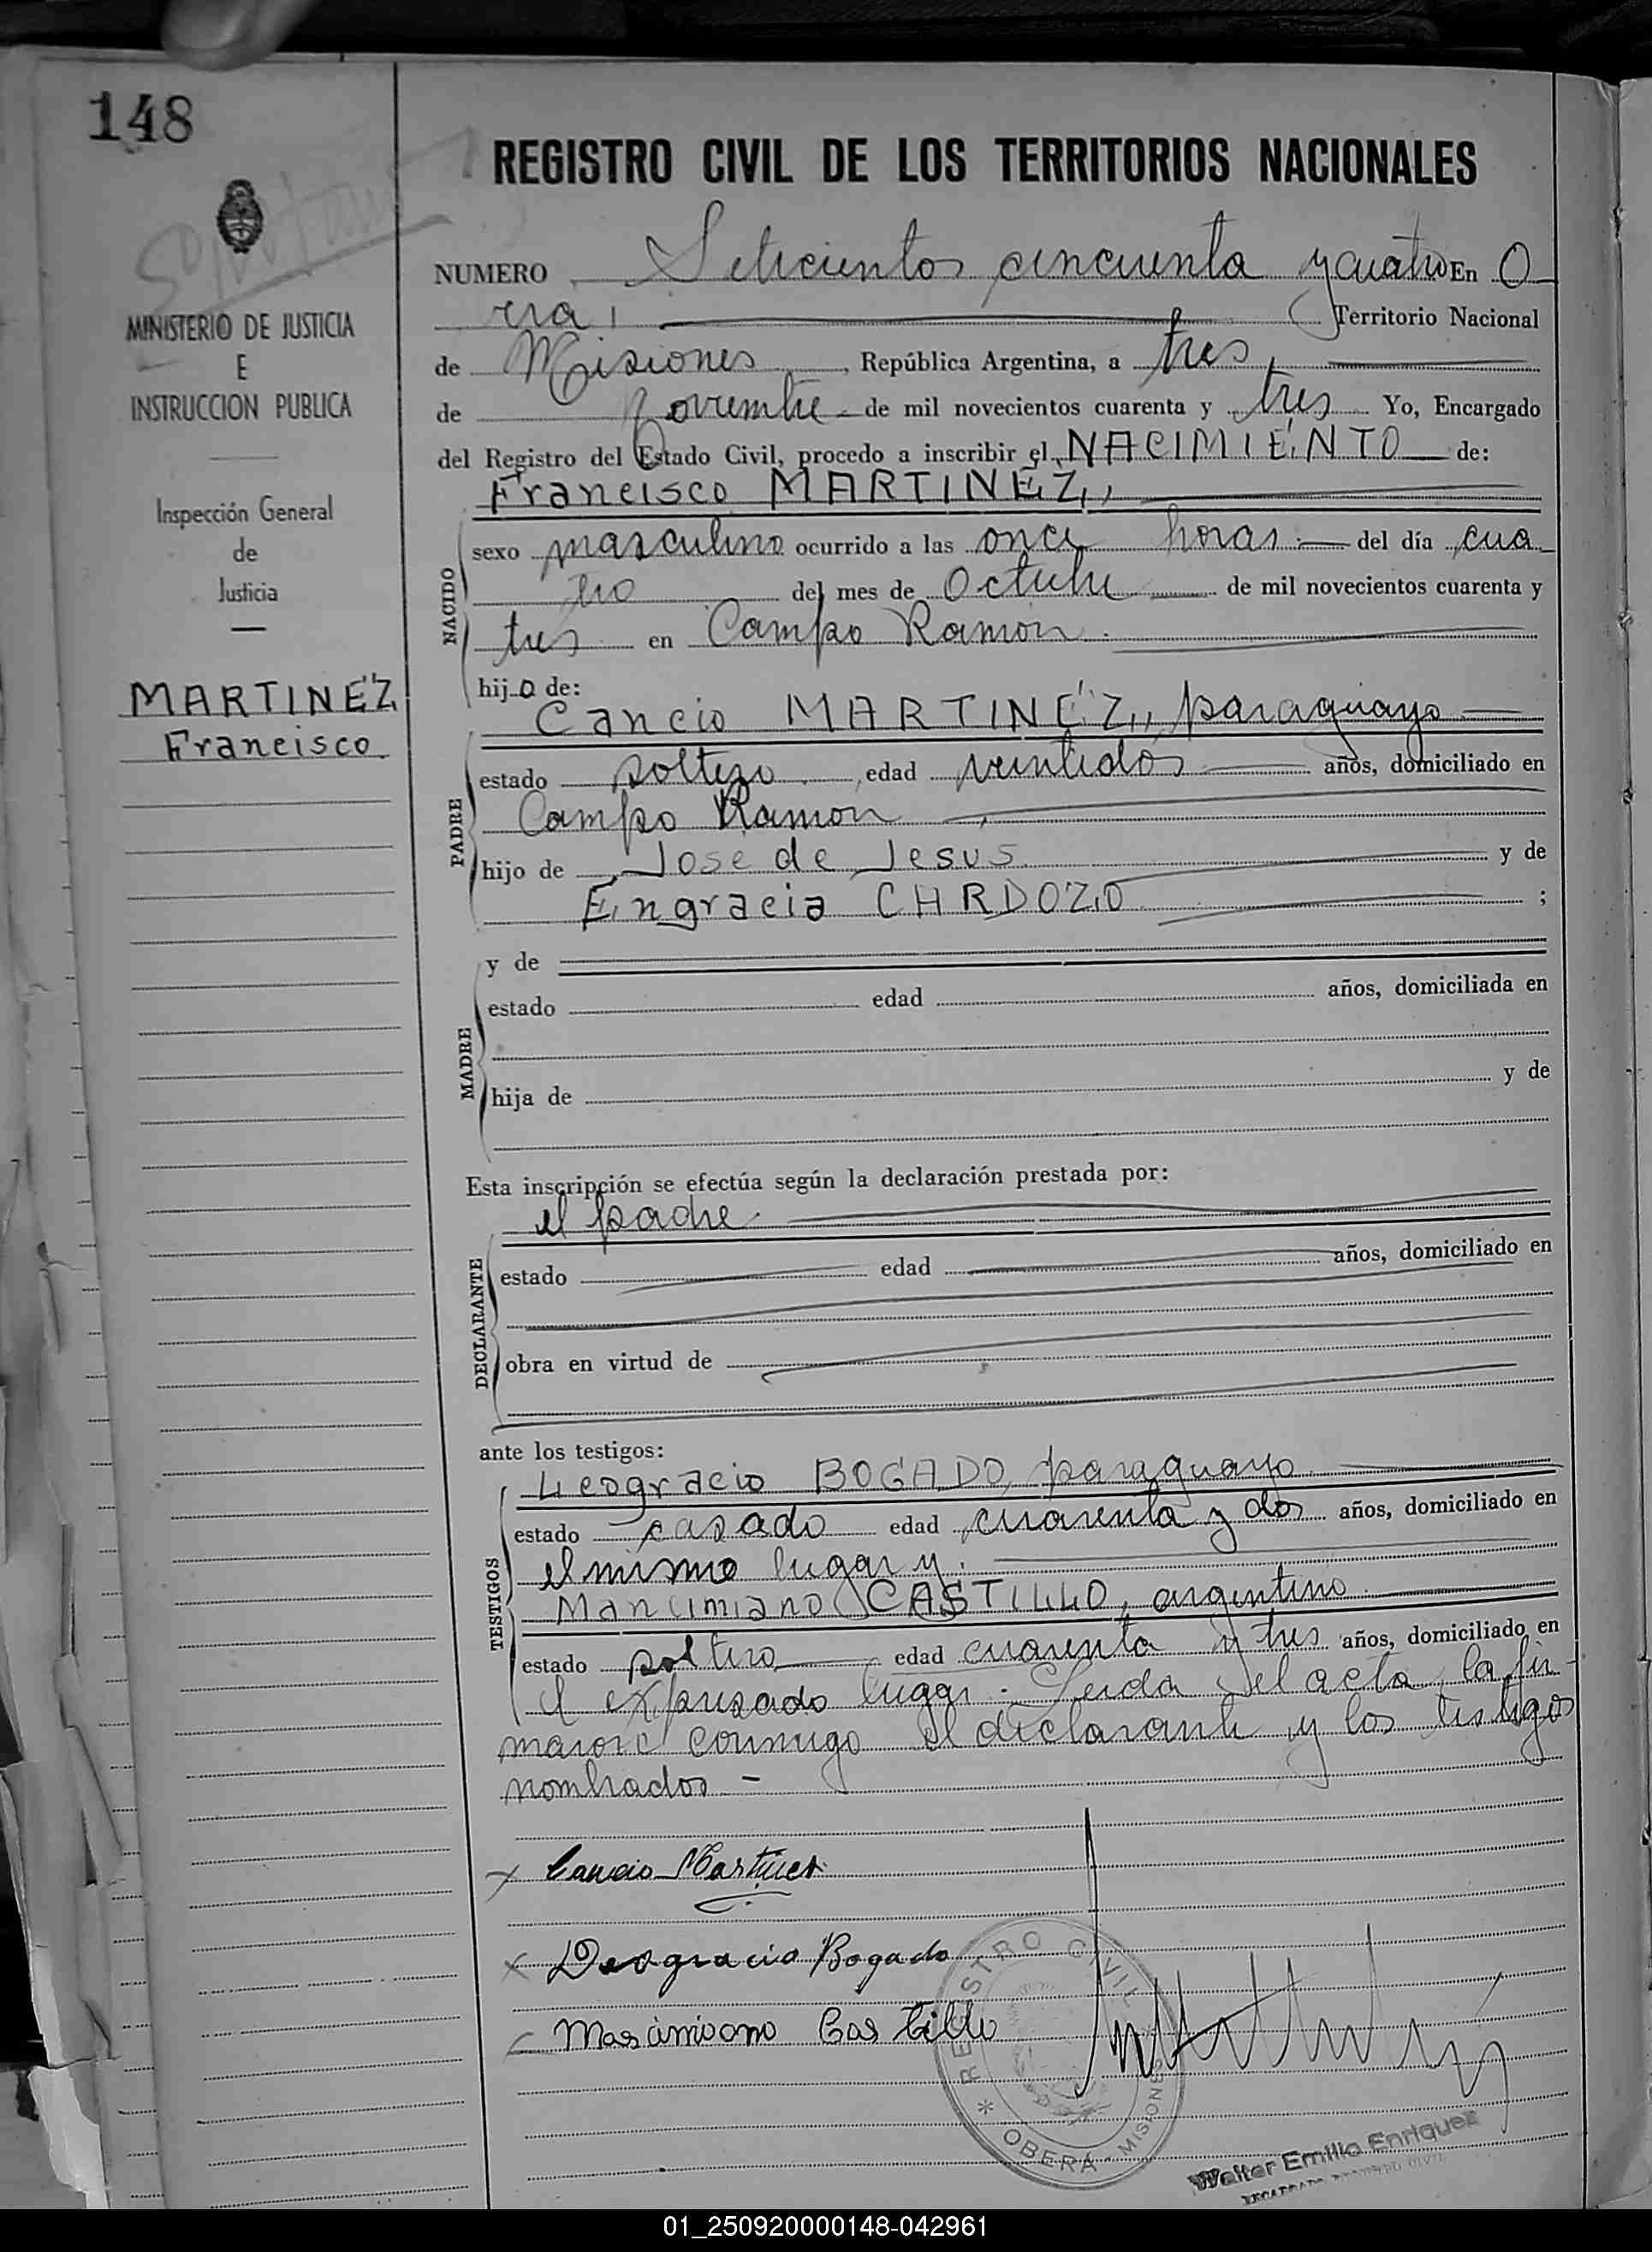 148
REGISTRO CIVIL DE LOS TERRITORIOS NACIONALES
NUMERO Setecientos cincuenta y cuatro En O
MINISTERIO DE JUSTICIA
E
INSTRUCCION PUBLICA
Inspección General
de
Justicia
MARTINEZ
Francisco
Territorio Nacional
de Misiones, República Argentina, a tres
de Noviembre de mil novecientos cuarenta y tres Yo, Encargado
del Registro del Estado Civil, procedo a inscribir el NACIMIENTO de:
Francisco MARTINEZ,
NACIDO
sexo masculino ocurrido a las once horas del día cua
tro del mes de Octubre de mil novecientos cuarenta y
tres en Campo Ramon
hijo de:
Cancio MARTINEZ, paraguayo
PADRE
estado soltero, edad veintidos años, domiciliado en
Campo Ramon
hijo de Jose de Jesus y de
Engracia CARDOZO ;
MADRE
y de
estado edad años, domiciliada en
hija de y de
Esta inscripción se efectúa según la declaración prestada por:
el padre
DECLARANTE
estado edad años, domiciliado en
obra en virtud de
ante los testigos:
TESTIGOS
Leogracio BOGADO, paraguayo
estado casado edad cuarenta y dos años, domiciliado en
el mismo lugar y
CASTILLO, argentino
estado soltero edad cuarenta y tres años, domiciliado en
el expresado lugar. Leida el acta, la fir-
maron conmigo el declarante y los testigos
nombrados -
Cancio Martinez
Deogracio Bogado
Masimiano Castillo
REGISTRO CIVIL
* OBERA - MISIONES
Walter Emilio Enriquez
01_250920000148-042961